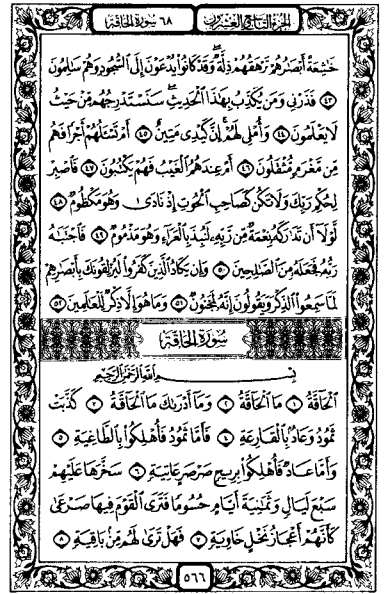 الجزء التاسع والعشرون ٦٨ سورة الحاقة
خَٰشِعَةً أَبْصَٰرُهُمْ تَرْهَقُهُمْ ذِلَّةٌ ۖ وَقَدْ كَانُوا۟ يُدْعَوْنَ إِلَى ٱلسُّجُودِ وَهُمْ سَٰلِمُونَ
٤٣ فَذَرْنِى وَمَن يُكَذِّبُ بِهَٰذَا ٱلْحَدِيثِ ۖ سَنَسْتَدْرِجُهُم مِّنْ حَيْثُ
لَا يَعْلَمُونَ ٤٤ وَأُمْلِى لَهُمْ ۚ إِنَّ كَيْدِى مَتِينٌ ٤٥ أَمْ تَسْـَٔلُهُمْ أَجْرًا فَهُم
مِّن مَّغْرَمٍ مُّثْقَلُونَ ٤٦ أَمْ عِندَهُمُ ٱلْغَيْبُ فَهُمْ يَكْتُبُونَ ٤٧ فَٱصْبِرْ
لِحُكْمِ رَبِّكَ وَلَا تَكُن كَصَاحِبِ ٱلْحُوتِ إِذْ نَادَىٰ وَهُوَ مَكْظُومٌ ٤٨
لَّوْلَآ أَن تَدَٰرَكَهُۥ نِعْمَةٌ مِّن رَّبِّهِۦ لَنُبِذَ بِٱلْعَرَآءِ وَهُوَ مَذْمُومٌ ٤٩ فَٱجْتَبَٰهُ
رَبُّهُۥ فَجَعَلَهُۥ مِنَ ٱلصَّٰلِحِينَ ٥٠ وَإِن يَكَادُ ٱلَّذِينَ كَفَرُوا۟ لَيُزْلِقُونَكَ بِأَبْصَٰرِهِمْ
لَمَّا سَمِعُوا۟ ٱلذِّكْرَ وَيَقُولُونَ إِنَّهُۥ لَمَجْنُونٌ ٥١ وَمَا هُوَ إِلَّا ذِكْرٌ لِّلْعَٰلَمِينَ ٥٢
سُورَةُ الحَاقَّةِ
بِسْمِ ٱللَّهِ ٱلرَّحْمَٰنِ ٱلرَّحِيمِ
ٱلْحَآقَّةُ ١ مَا ٱلْحَآقَّةُ ٢ وَمَآ أَدْرَىٰكَ مَا ٱلْحَآقَّةُ ٣ كَذَّبَتْ
ثَمُودُ وَعَادٌۢ بِٱلْقَارِعَةِ ٤ فَأَمَّا ثَمُودُ فَأُهْلِكُوا۟ بِٱلطَّاغِيَةِ ٥
وَأَمَّا عَادٌ فَأُهْلِكُوا۟ بِرِيحٍ صَرْصَرٍ عَاتِيَةٍ ٦ سَخَّرَهَا عَلَيْهِمْ
سَبْعَ لَيَالٍ وَثَمَٰنِيَةَ أَيَّامٍ حُسُومًا فَتَرَى ٱلْقَوْمَ فِيهَا صَرْعَىٰ
كَأَنَّهُمْ أَعْجَازُ نَخْلٍ خَاوِيَةٍ ٧ فَهَلْ تَرَىٰ لَهُم مِّنۢ بَاقِيَةٍ ٨
٥٦٦